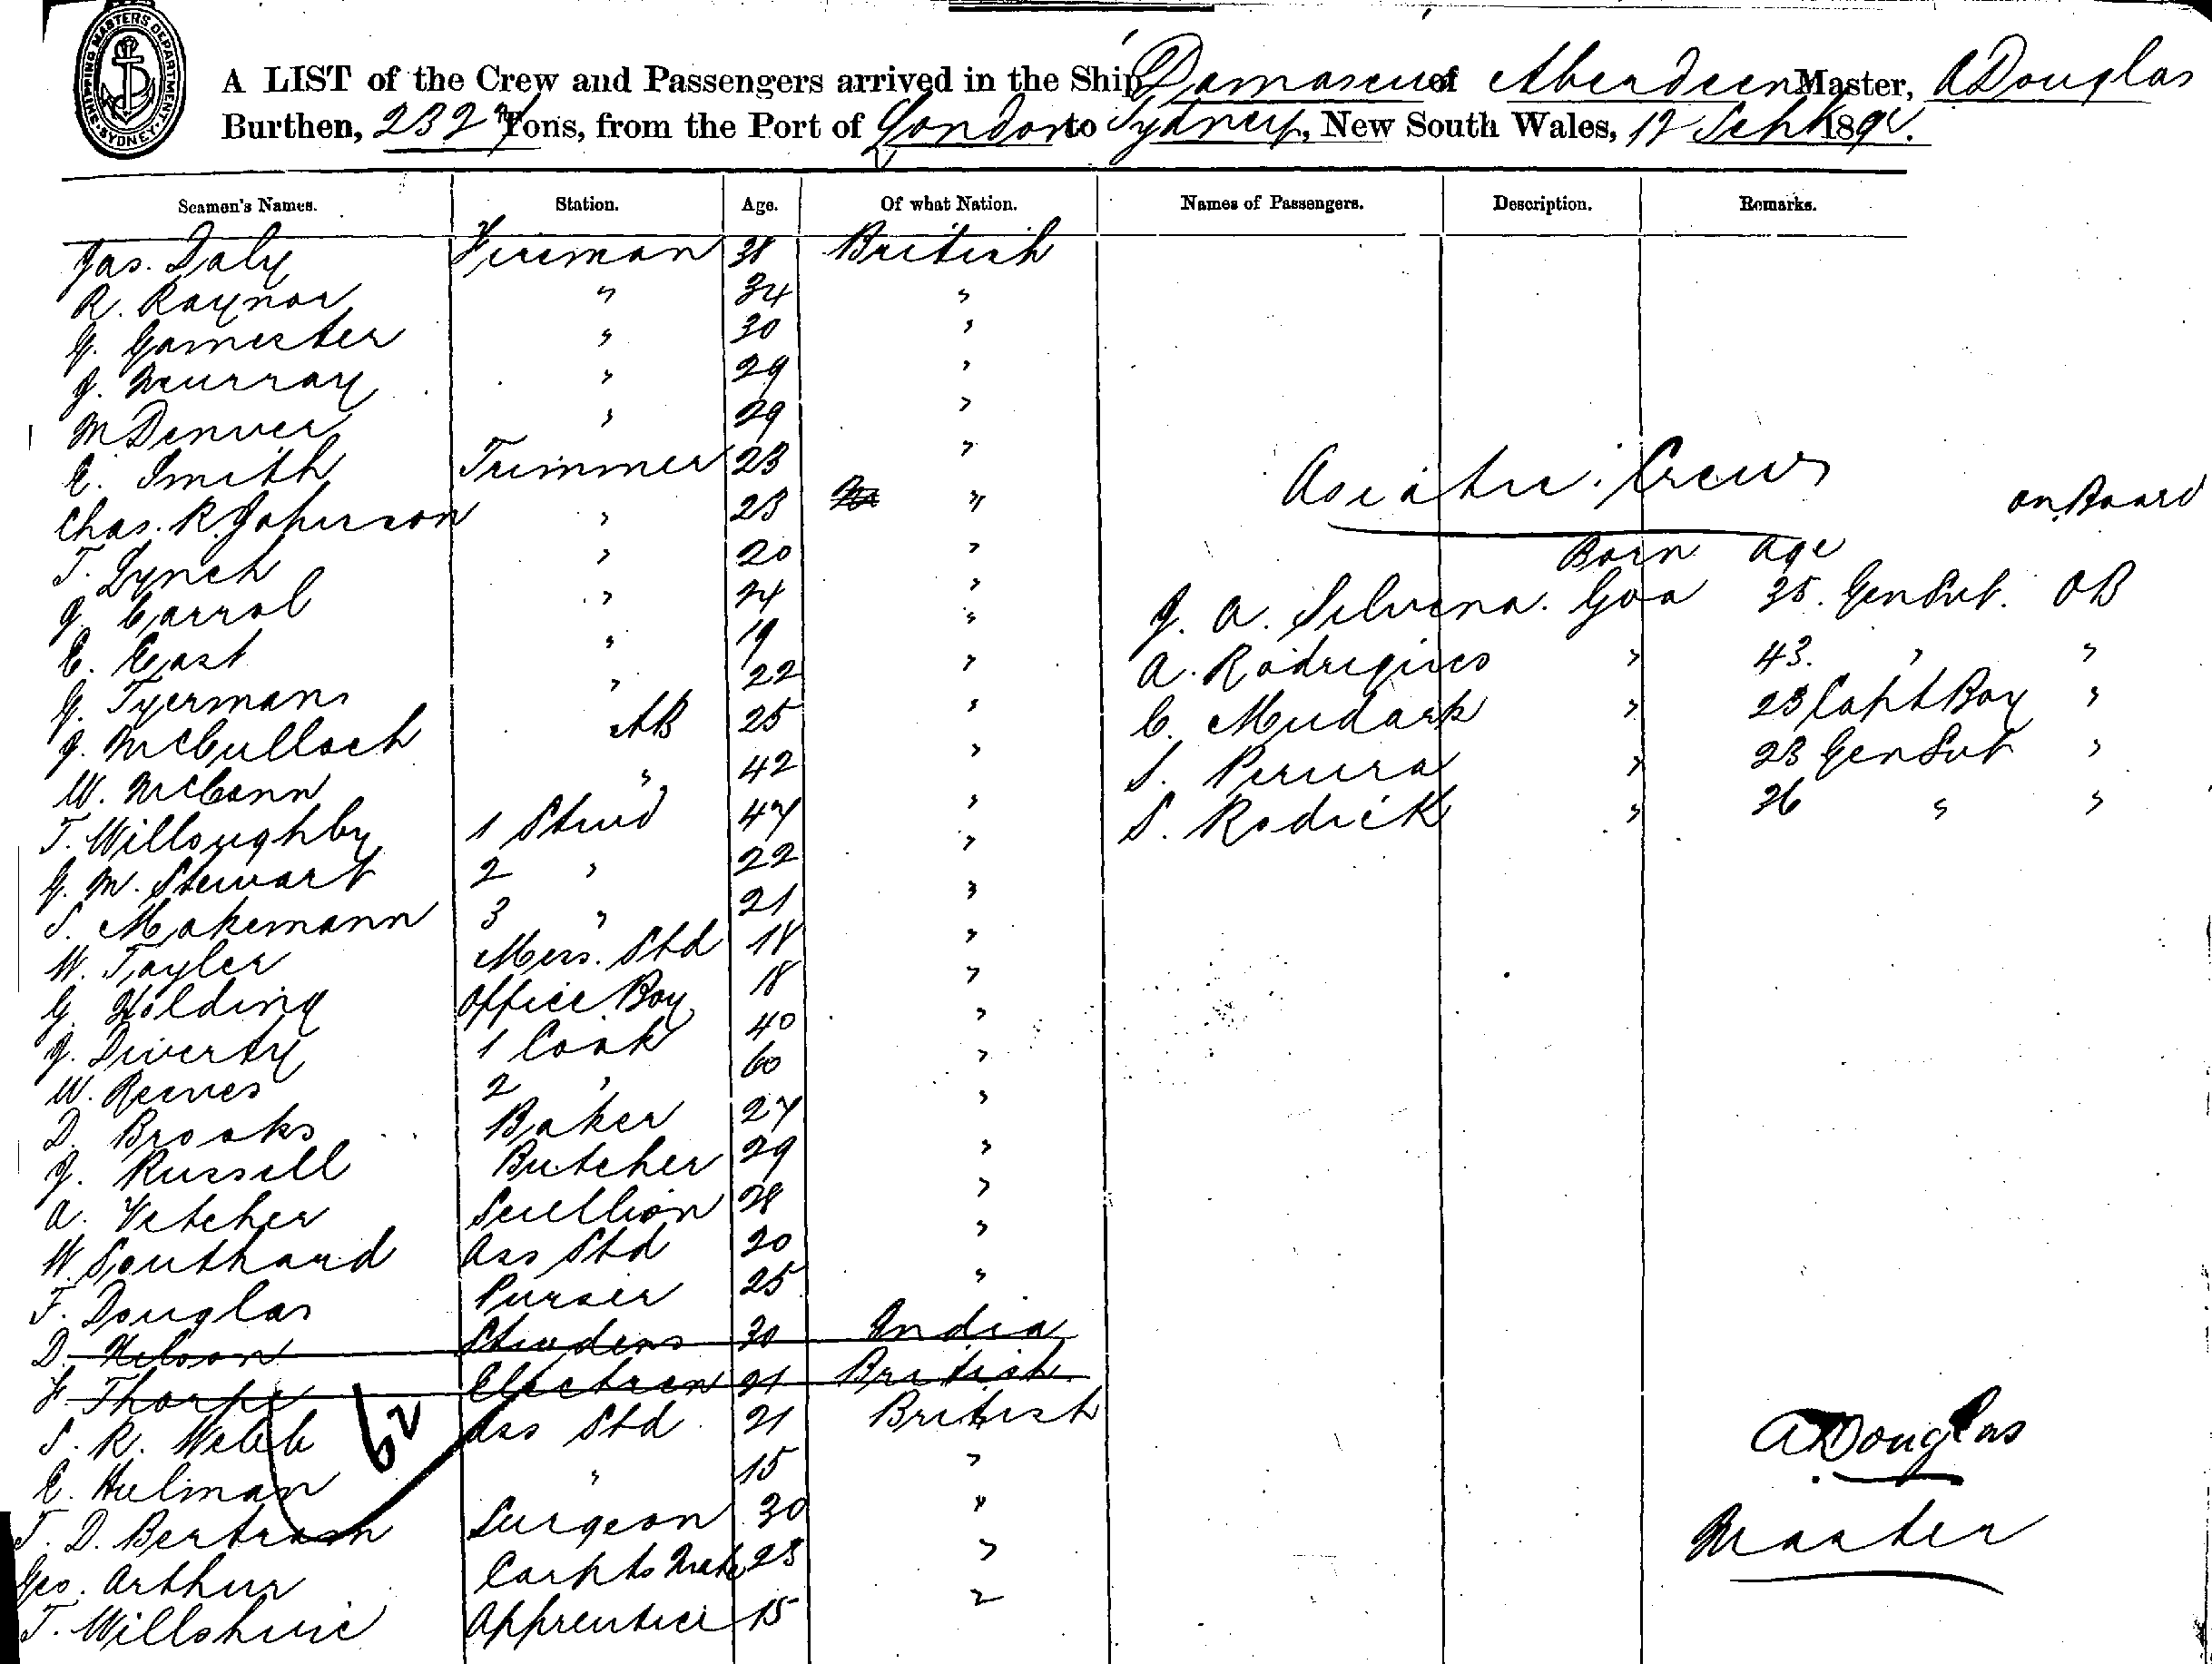 SHIPPING MASTERS DEPARTMENT. SYDNEY.
A LIST of the Crew and Passengers arrived in the Ship Damascus of Aberdeen Master, A Douglas
Burthen, 2327 Tons, from the Port of London to Sydney, New South Wales, 12 Sept 189
Seamen's Names. Station. Age. Of what Nation. Names of Passengers. Description. Remarks.
Jas. Daly Fireman 38 British
R. Raynor " 34 "
G. Gamester " 30 "
J. Murray " 29 "
M Denver " 29 "
E. Smith Trimmer 23 "
Chas. R. Johnson " 23 "
T. Lynch " 20 "
J. Carrol " 24 "
E. East " 19 "
G. Tyerman " 22 "
J. McCulloch AB 25 "
W. McCann " 42 "
T. Willoughby 1 Stwd 47 "
G. M. Stewart 2 " 22 "
S. Makemann 3 " 21 "
W. Tayler Mess. Std 18 "
G. Holding Office Boy 18 "
J. Diverty 1 Cook 40 "
W. Reeves 2 " 60 "
D. Brooks Baker 27 "
J. Russell Butcher 29 "
A. Vetcher Scullion 28 "
W. Southard Ass Std 20 "
F. Douglas Purser 25 "
D. Nelson Stwdess 30 India
F. Thorpe Electrcn 21 British
S. R. Webb Ass Std 21 British
E. Hulman " 15 "
T. D. Bertram Surgeon 30 "
Geo. Arthur Carpts Mate 23 "
T. Willshire Apprentice 15 "
62
Asiatic Crew
on Board
Born age
J. A. Silvena. Goa 35. Gen Svt. OB
A. Rodriques " 43. " "
C. Mudark " 23 Capt Boy "
S. Perura " 23 Gen Svt "
S. Rodrick " 26 " "
A Douglas
Master